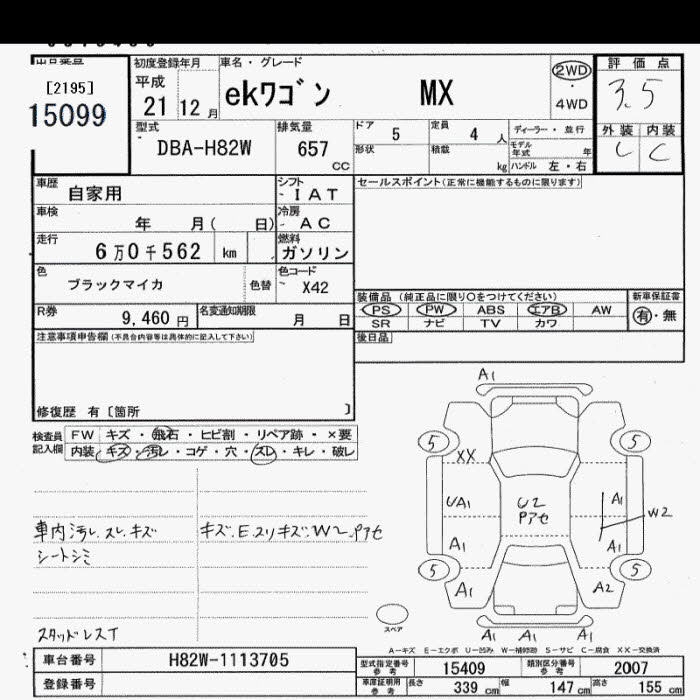 出品番号
[2195]
15099
初度登録年月
平成
21 12 月
車名・グレード
ekワゴン MX
2WD
・
4WD
評価点
3.5
外装 内装
C C
型式
DBA-H82W
排気量
657
CC
ドア 5
定員 4 人
ディーラー・並行
形状
積載 kg
モデル年式 年
ハンドル 左・右
車歴 自家用
シフト IAT
セールスポイント(正常に機能するものに限ります)
車検 年 月( 日)
冷房 AC
走行 6万0千562 km
燃料 ガソリン
色 ブラックマイカ 色替
色コード X42
装備品 (純正品に限り○をつけてください)
新車保証書
PS PW ABS エアB AW
有・無
SR ナビ TV カワ
R券 9,460 円
名変通知期限 月 日
後日品
注意事項申告欄(不具合内容等は具体的に記入して下さい)
修復歴 有〔箇所 〕
検査員記入欄
FW キズ・飛石・ヒビ割・リペア跡・×要
内装 キズ・汚レ・コゲ・穴・スレ・キレ・破レ
車内汚レ.スレ.キズ
シートシミ
キズ.E.スリキズ.W2.Pアセ
スタッドレスT
A1
5 5
XX
UA1
U2
Pアセ
A1
W2
A1
A1
5 5
A1
A2
A1 A1 A1
スペア
A－キズ E－エクボ U－凹み W－補修跡 S－サビ C－腐食 XX－交換済
車台番号 H82W-1113705
登録番号
型式指定番号 参考 15409
類別区分番号 参考 2007
車庫証明用 参考 長さ 339 cm 幅 147 cm 高さ 155 cm